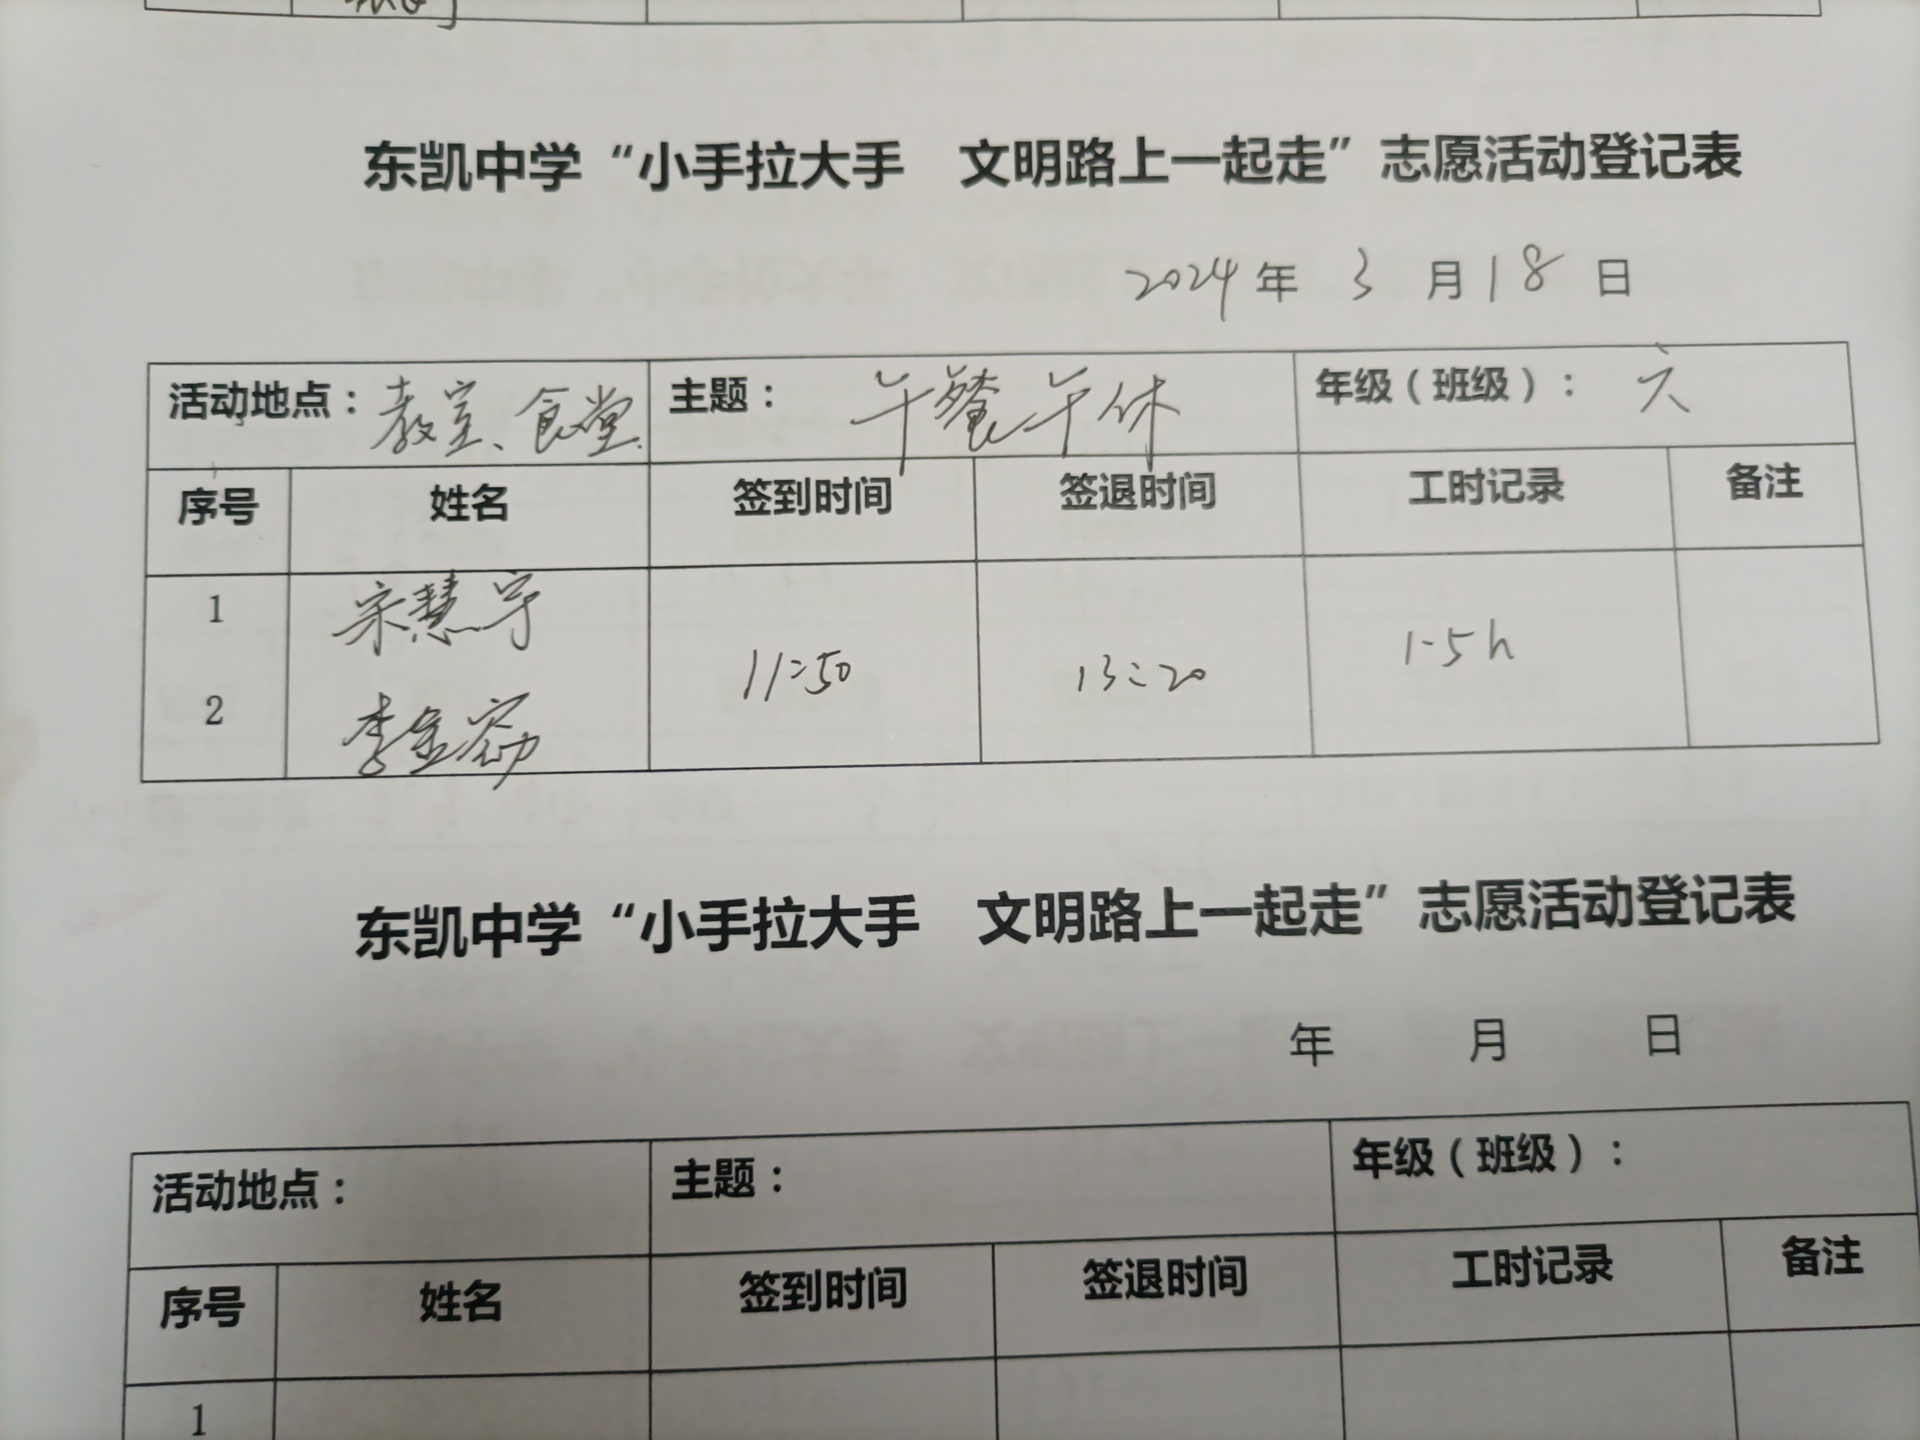 东凯中学“小手拉大手 文明路上一起走”志愿活动登记表
2024年 3 月 18 日
活动地点：教室、食堂. 主题： 午餐午休 年级（班级）： 六
序号 姓名 签到时间 签退时间 工时记录 备注
1 宋慧宇
11:50 13:20 1.5h
2 李金
东凯中学“小手拉大手 文明路上一起走”志愿活动登记表
年 月 日
活动地点： 主题： 年级（班级）：
序号 姓名 签到时间 签退时间 工时记录 备注
1